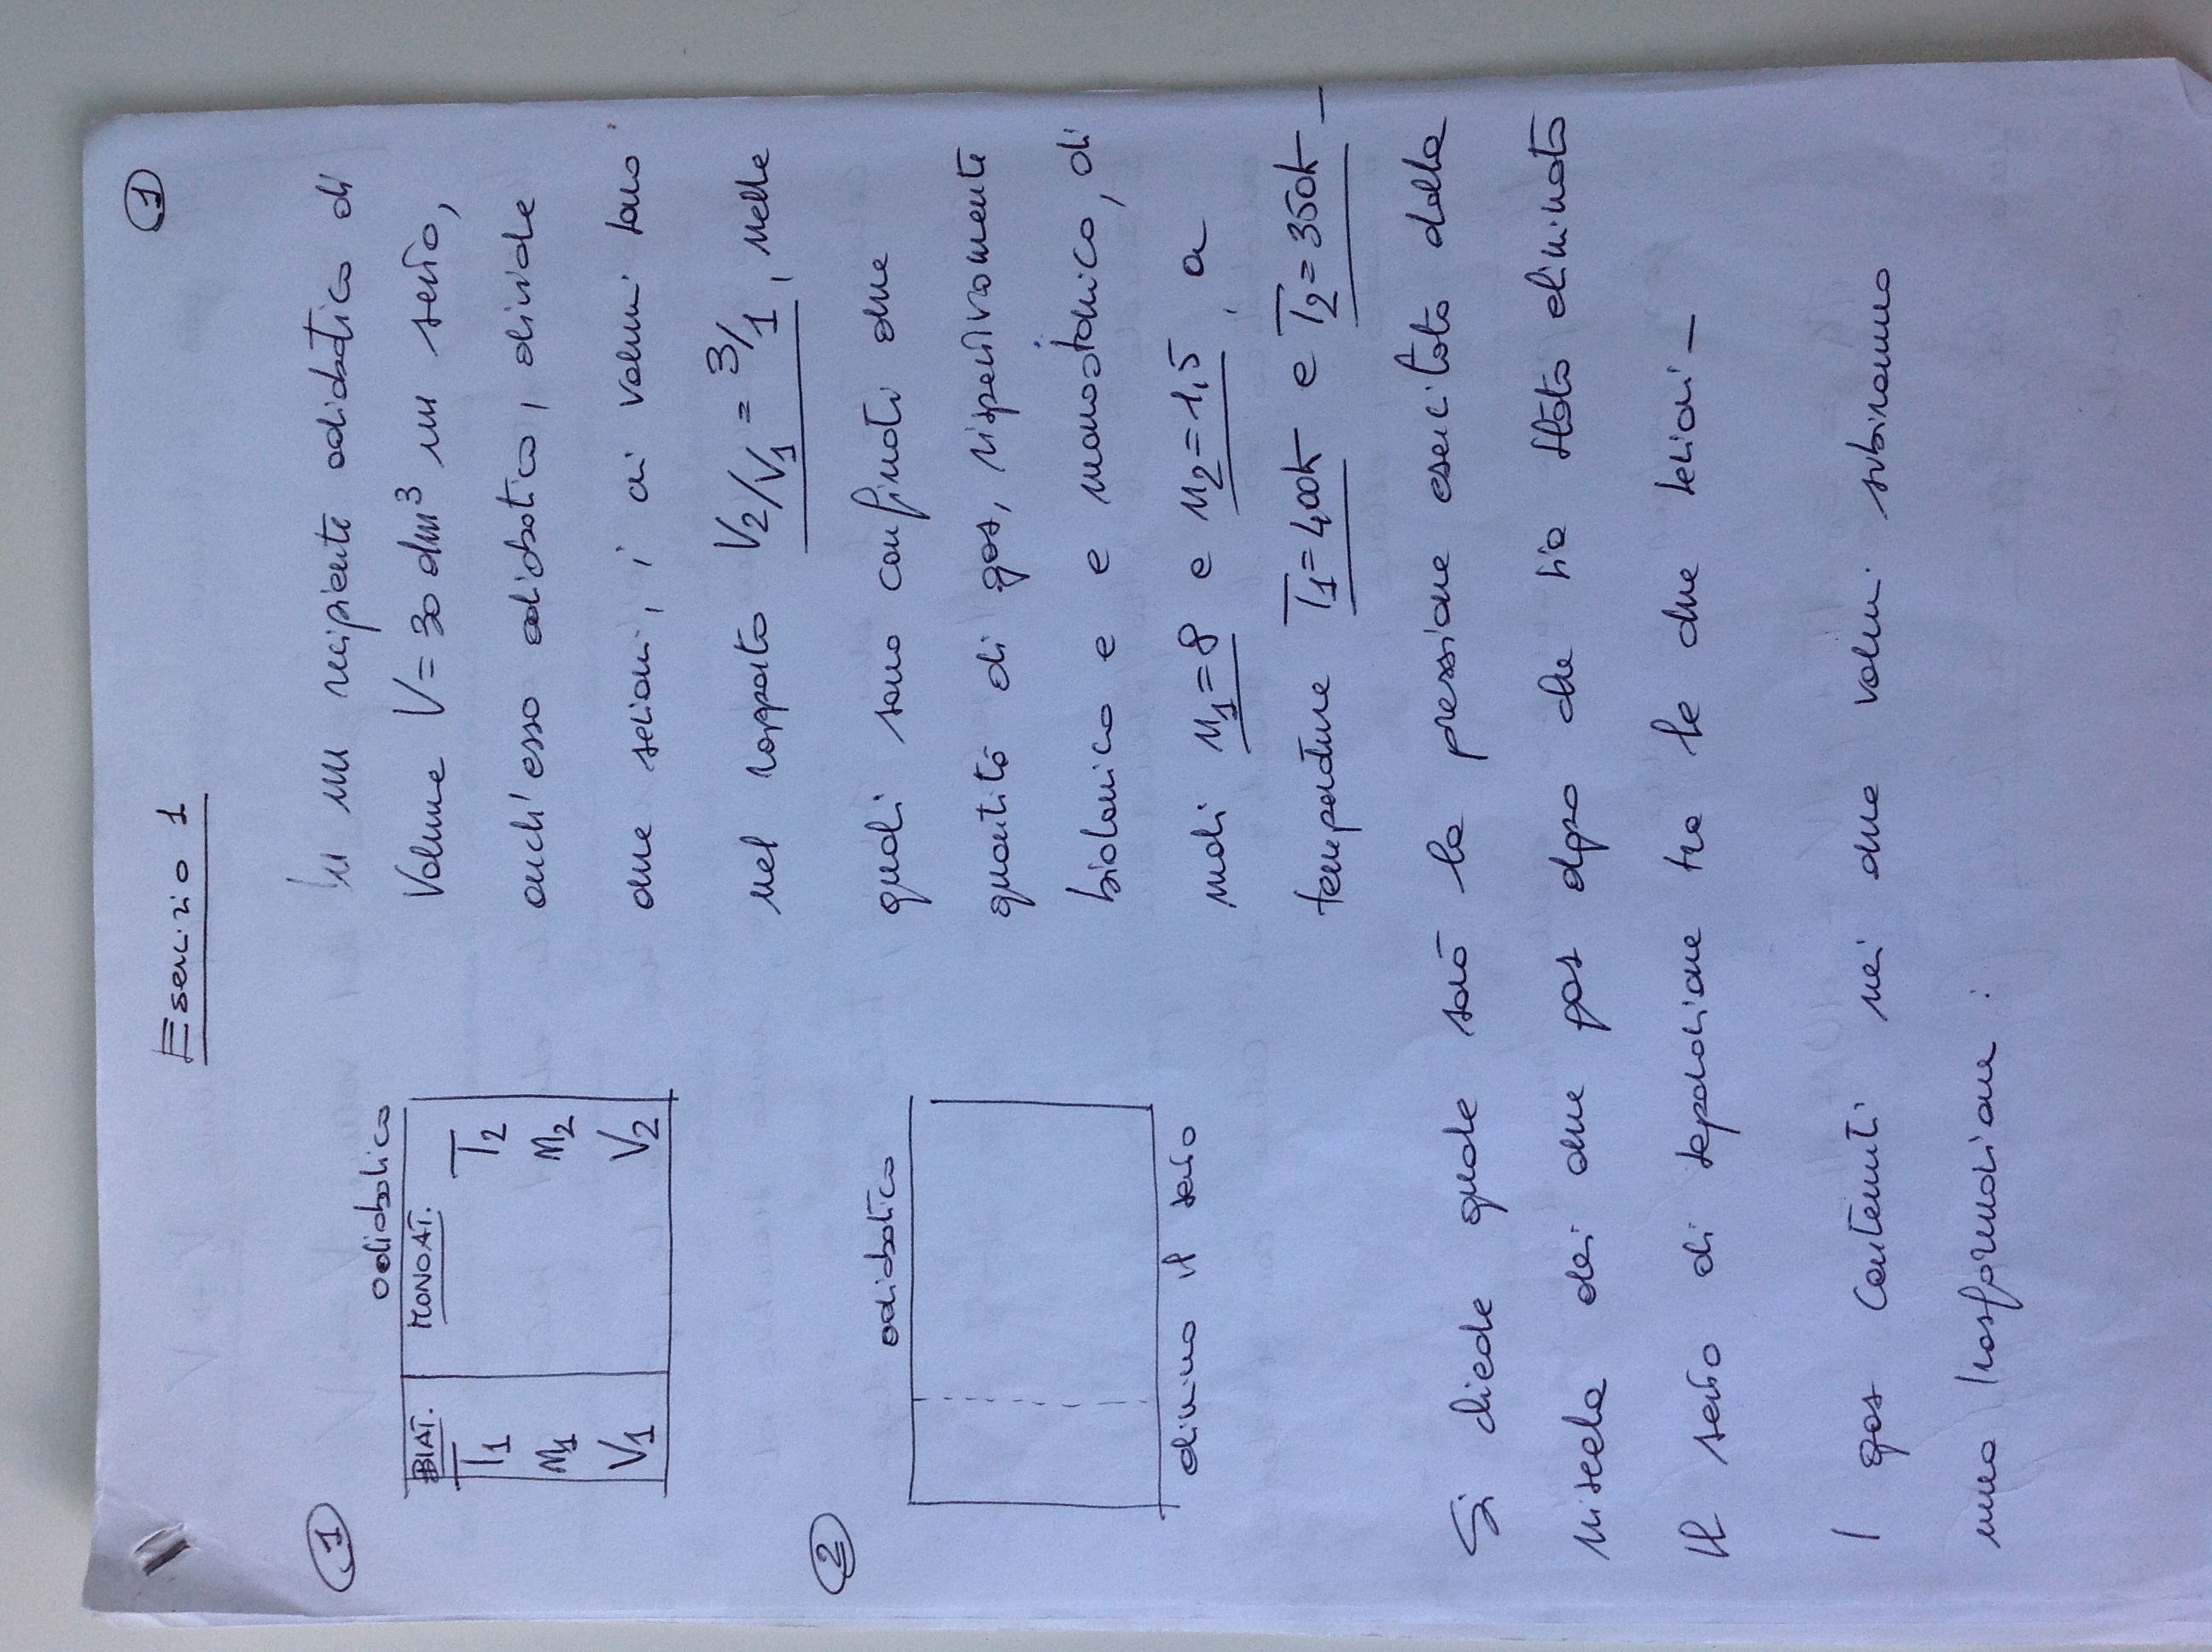 1
Esercizio 1
1
adiabatico
BIAT. MONOAT.
T1 T2
n1 n2
V1 V2
In un recipiente adiabatico di
Volume V = 30 dm³ un setto,
anch'esso adiabatico, divide
due sezioni, i cui volumi sono
nel rapporto V2/V1 = 3/1, nelle
quali sono confinati due
quantità di gas, rispettivamente
biatomico e e monoatomico, di
moli n1=8 e n2=1,5, a
temperature T1=400K e T2=350K –
2
adiabatico
elimino il setto
Si chiede quale sarà la pressione esercitata dalla
miscela dei due gas dopo che sia stato eliminato
il setto di separazione tra le due sezioni –
I gas contenuti nei due volumi subiranno
una trasformazione :